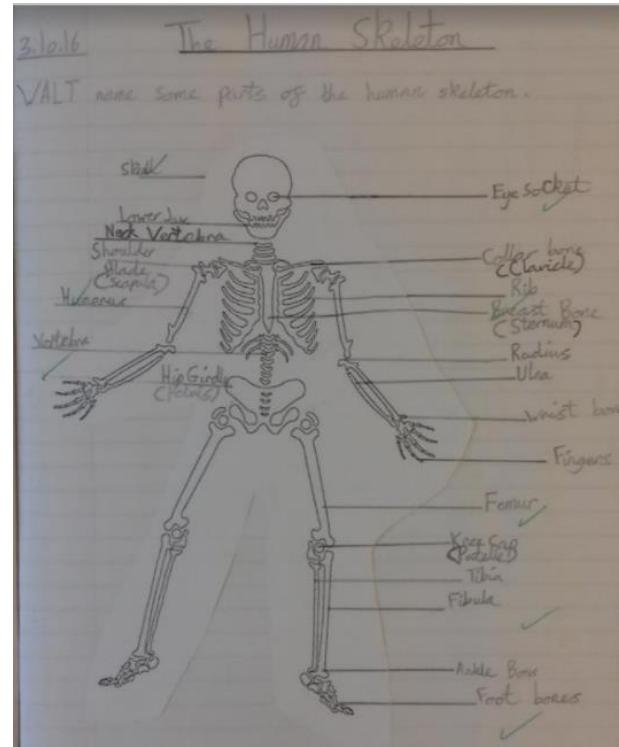 3.10.16
The Human Skeleton
WALT name some parts of the human skeleton.
Skull
Lower Jaw
Neck Vertebra
Shoulder
Blade
(Scapula)
Humerus
Vertebra
Hip Girdle
(Pelvis)
Eye Socket
Collar bone
(Clavicle)
Rib
Breast Bone
(Sternum)
Radius
Ulna
Wrist bone
Fingers
Femur
Knee Cap
(Patella)
Tibia
Fibula
Ankle Bone
Foot bones